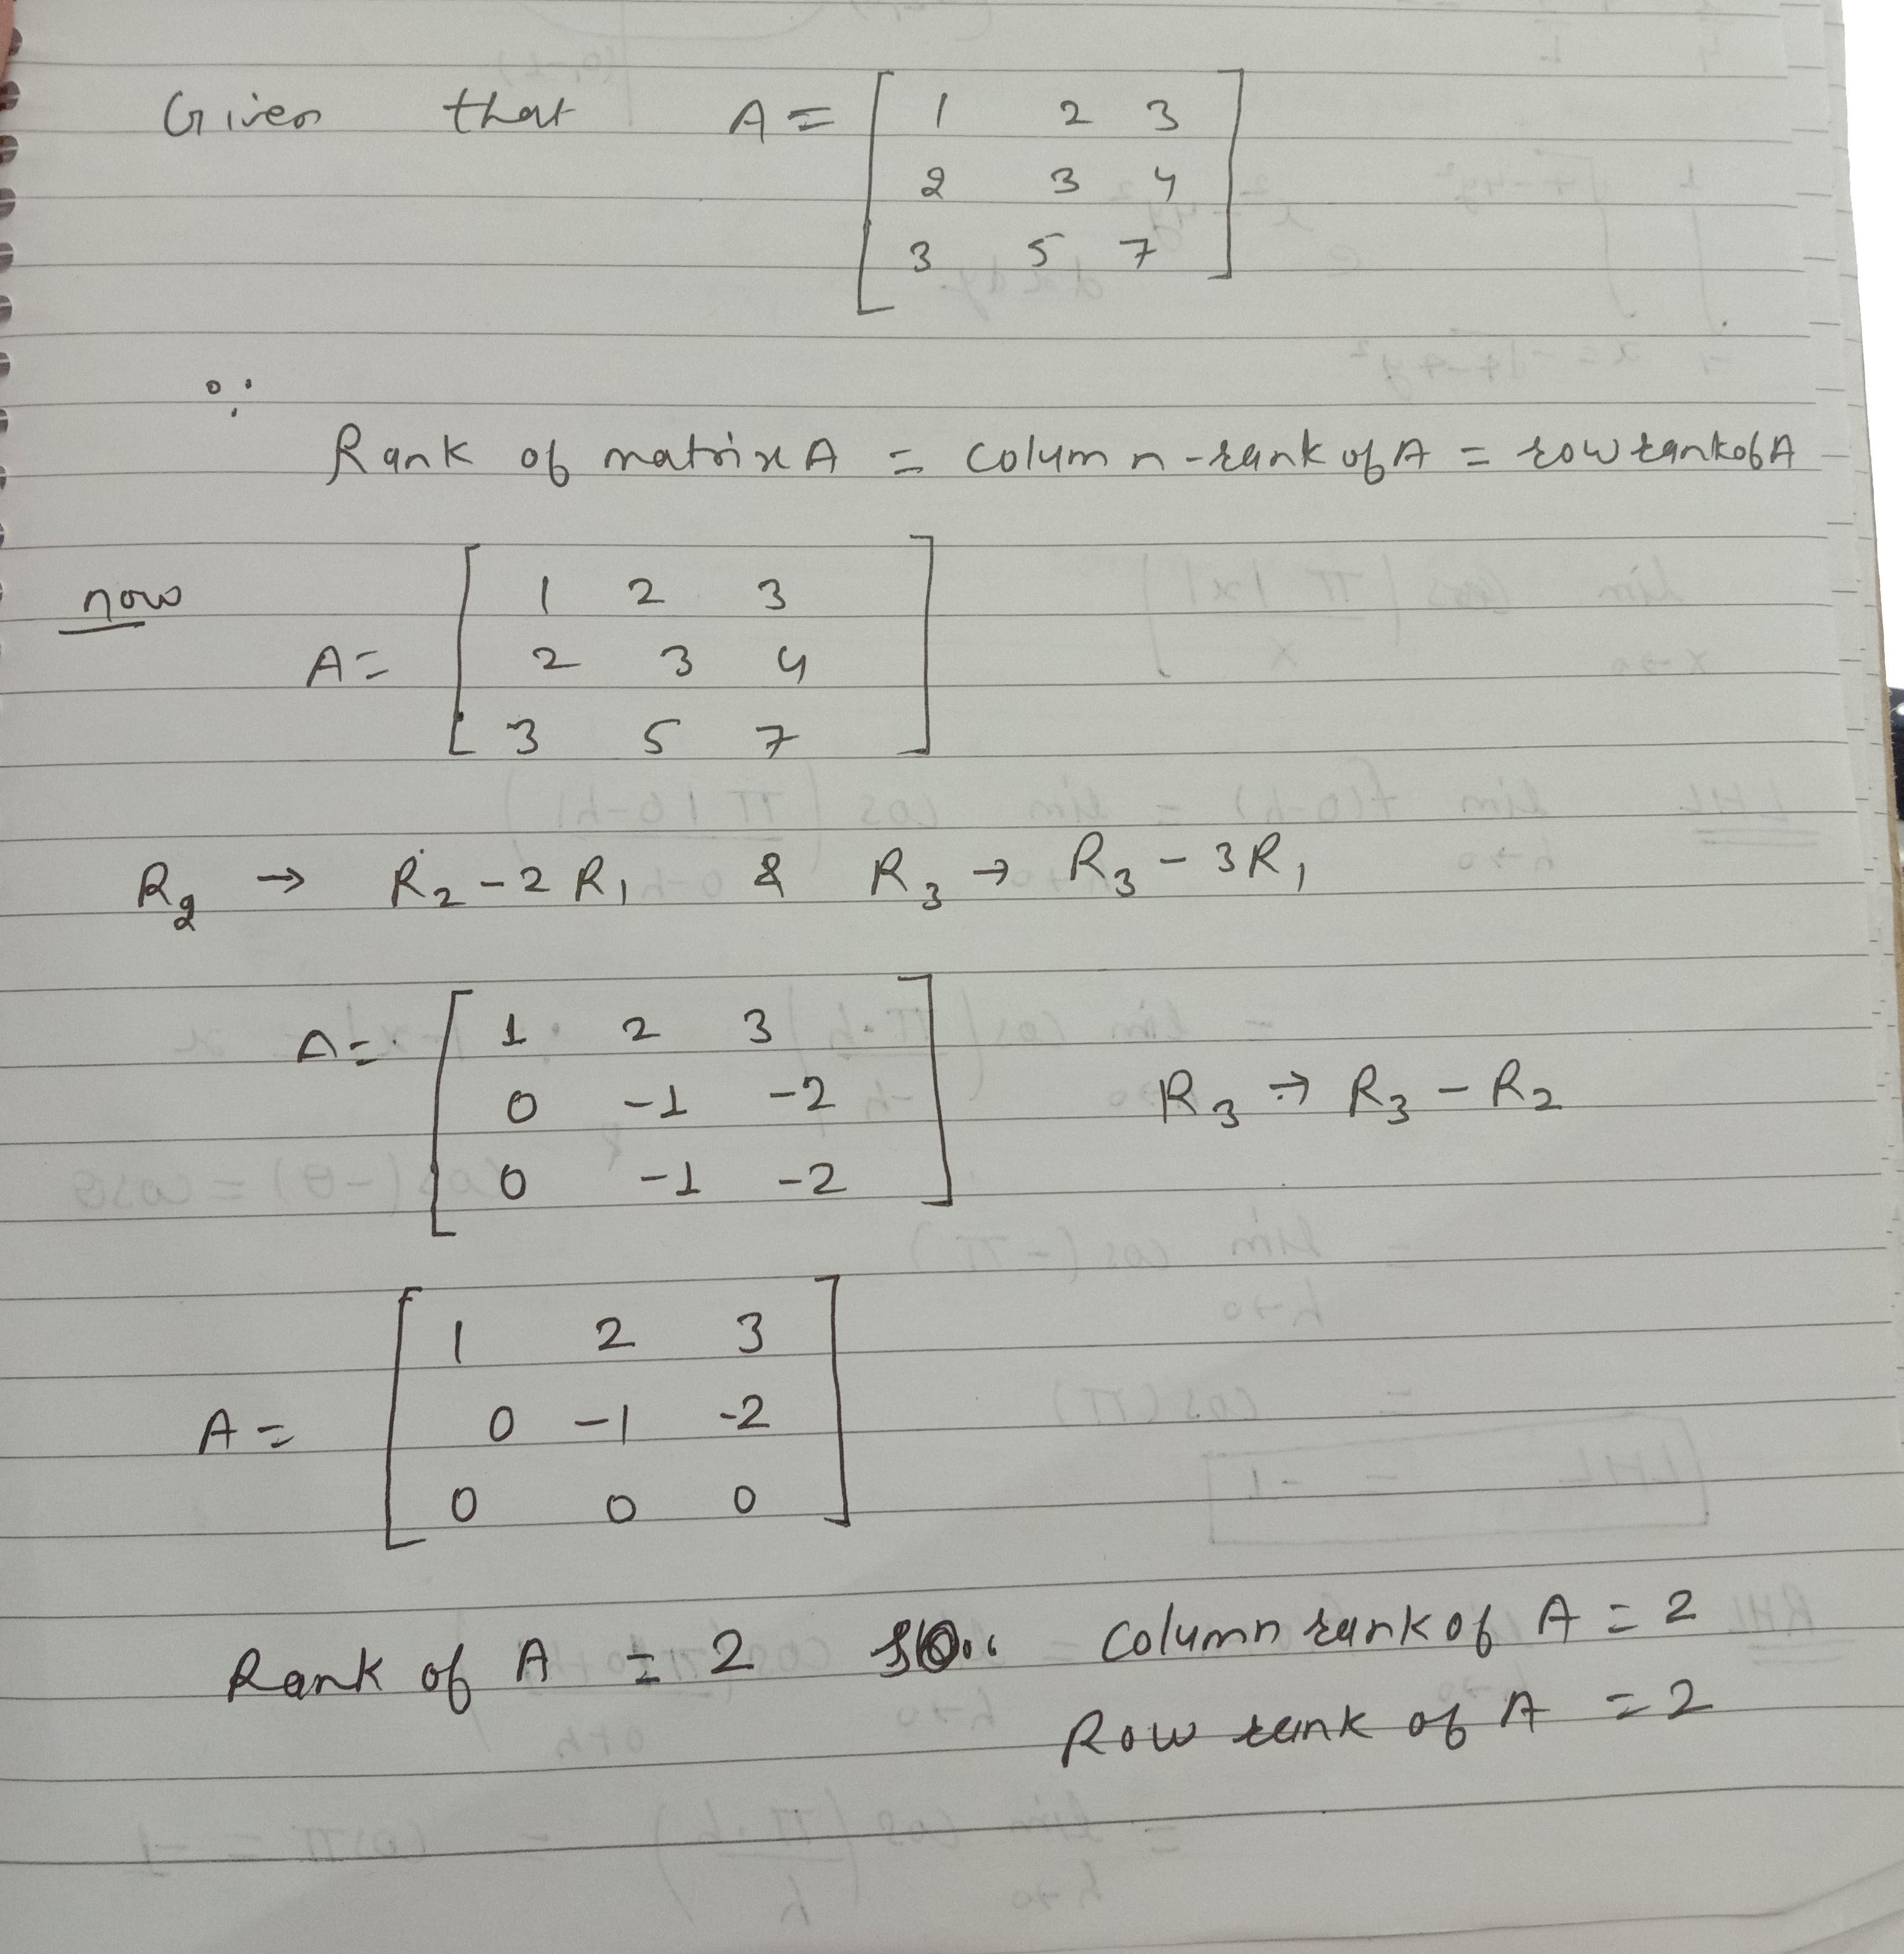 Given that A = [ 1 2 3
2 3 4
3 5 7 ]
∵
Rank of matrix A = column-rank of A = row rank of A
now
A = [ 1 2 3
2 3 4
3 5 7 ]
R₂ → R₂ - 2 R₁ & R₃ → R₃ - 3R₁
A = [ 1 2 3
0 -1 -2
0 -1 -2 ] R₃ → R₃ - R₂
A = [ 1 2 3
0 -1 -2
0 0 0 ]
Rank of A = 2 so column rank of A = 2
Row rank of A = 2